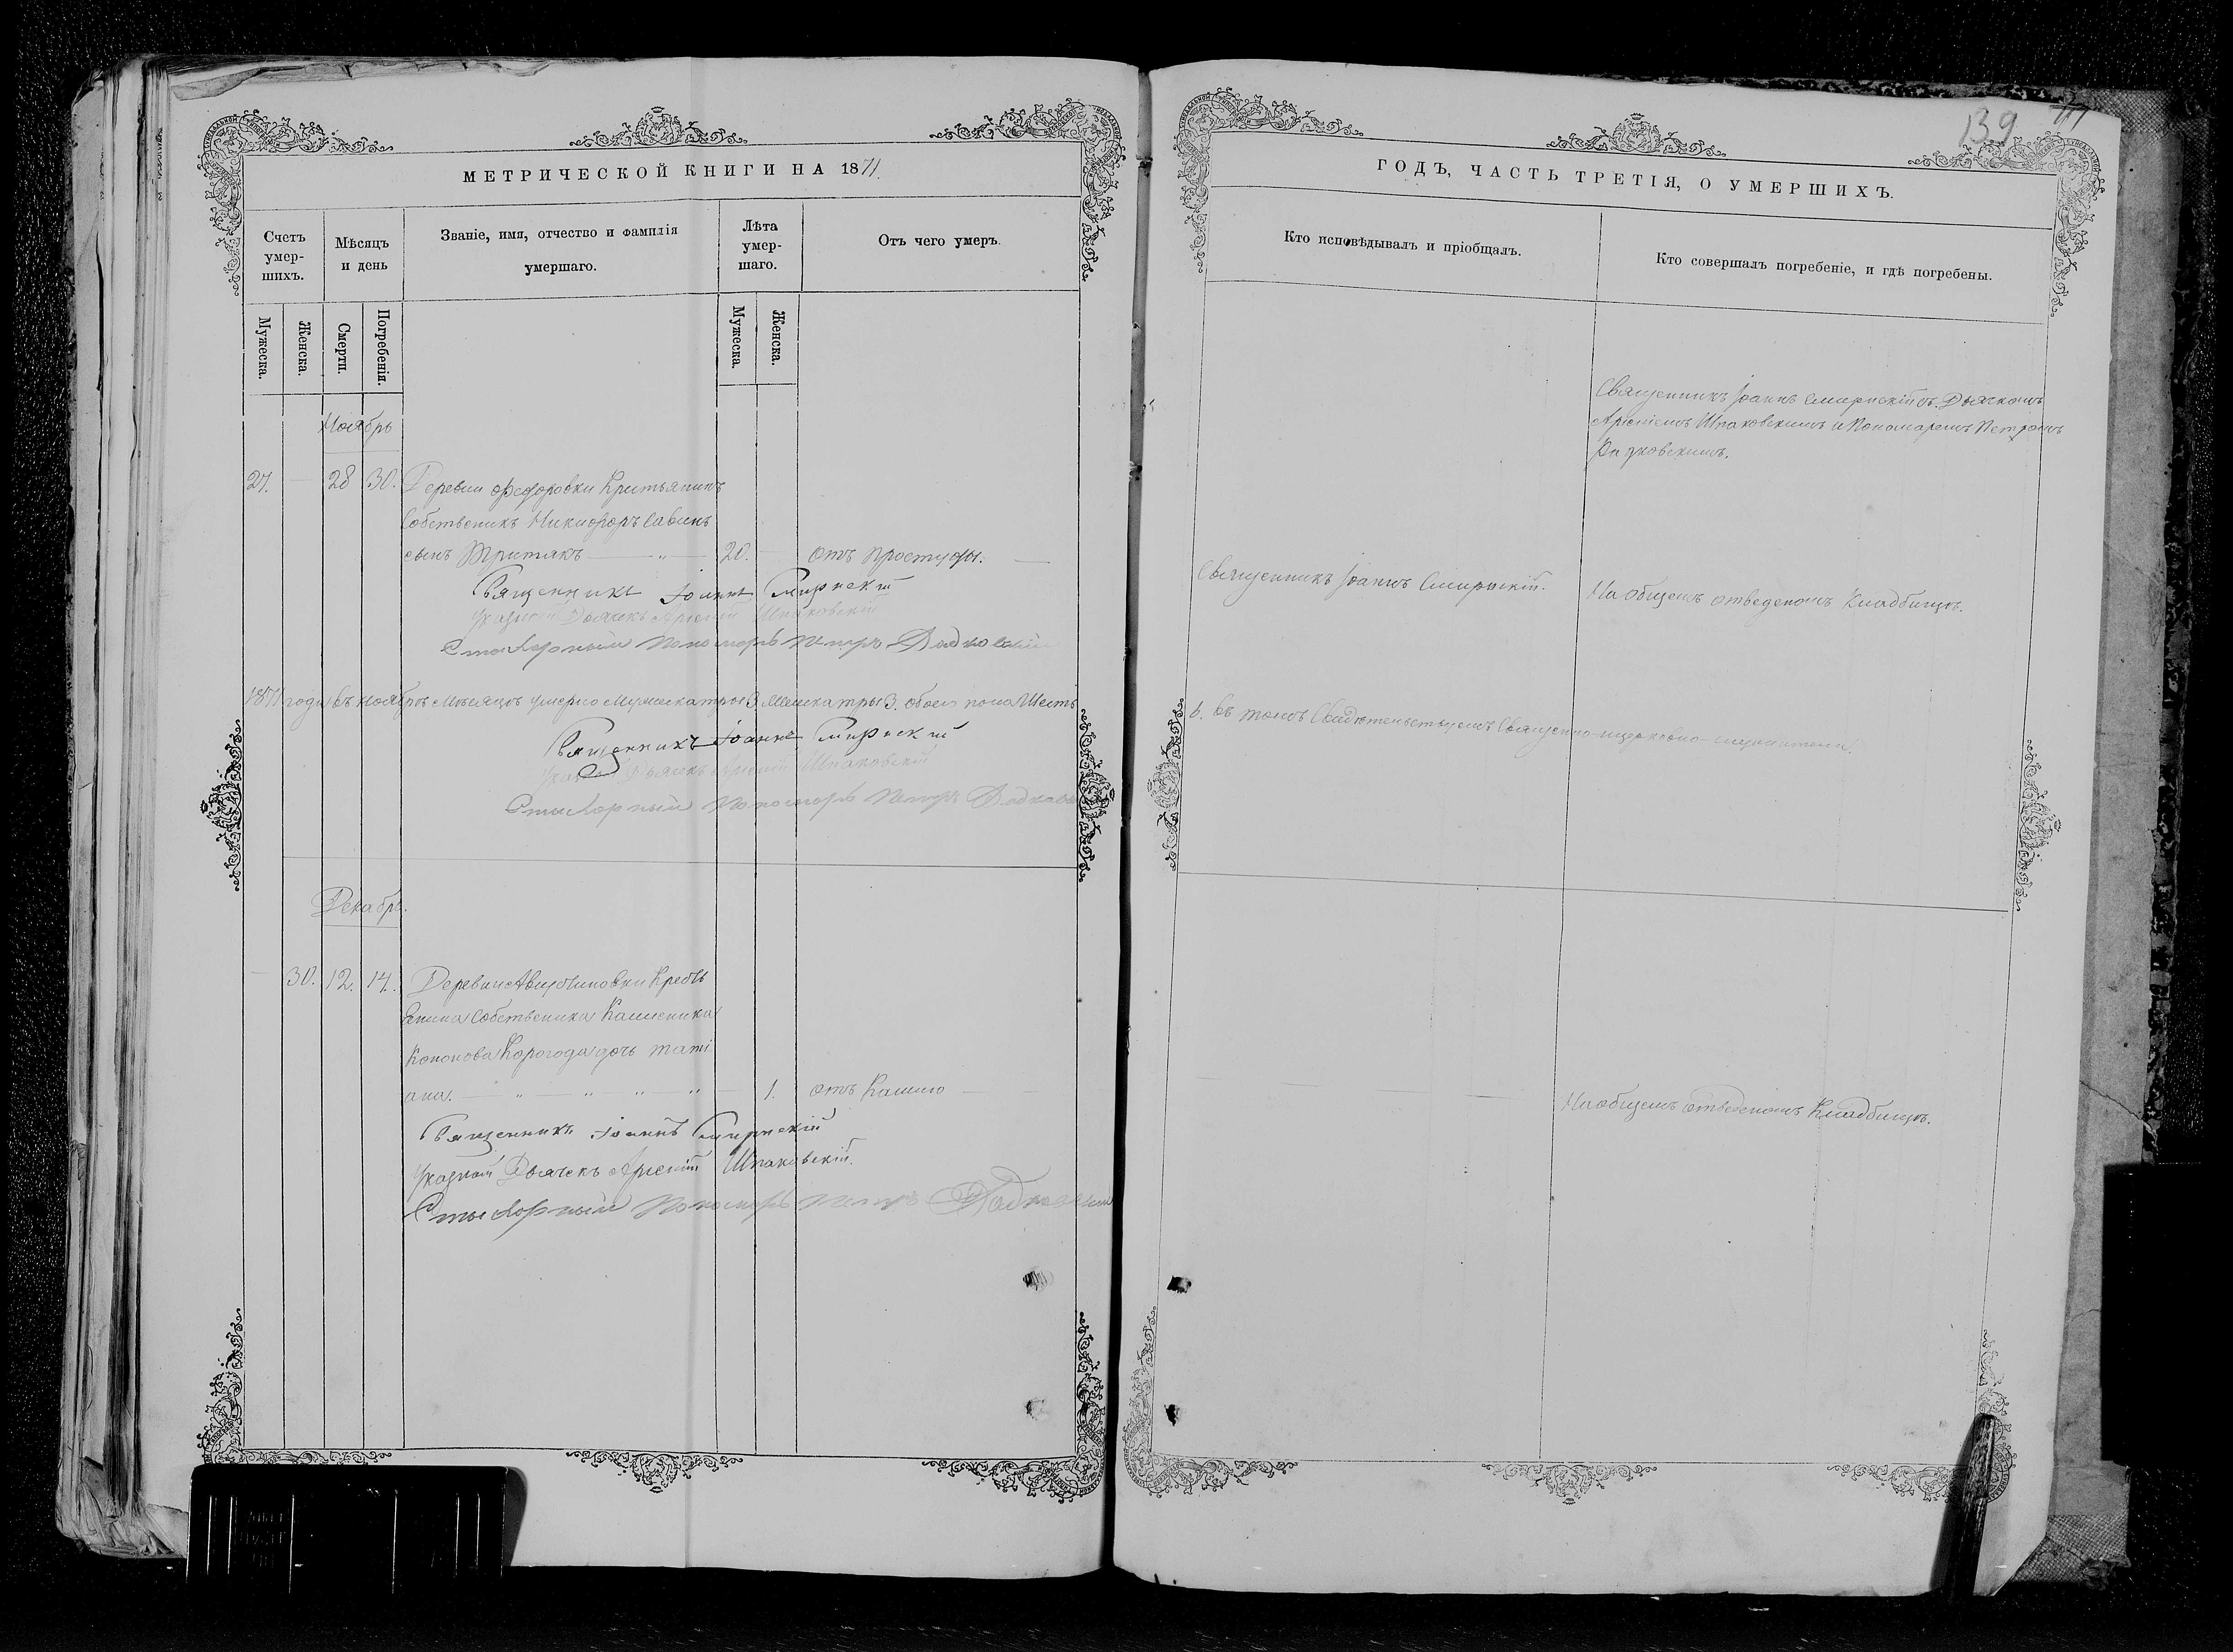 МЕТРИЧЕСКОЙ КНИГИ НА 1871.
Счетъ умер-шихъ.
Мѣсяцъ и день
Званіе, имя, отчество и фамилія умершаго.
Лѣта умер-шаго.
Отъ чего умеръ.
Мужеска.
Женска.
Смерти.
Погребенія.
Мужеска.
Женска.
Ноябрь
27. 28 30. Деревни Федоровки Кристьянинъ
Собственикъ Никифоръ Савинъ
сынъ Притыкъ 20. отъ простуды.
Священникъ Іоаннъ Смирнскій
Указной Дьячекъ Арсеній Шпаковскій
Стихарный Пономарь Петръ
1871 года въ ноябрѣ мѣсяцѣ умерло Мужеска три 3 Женска три 3. обоего пола Шесть
Священникъ Іоаннъ Смирнскій
Указной Дьячекъ Арсеній Шпаковскій
Стихарный Пономарь Петръ
Декабрь.
30. 12. 14. Деревни Кресть
янина Собственика
Кононова Корогода дочь Таті
ана. 1. отъ Кашлю
Священникъ Іоаннъ Смирнскій
Указной Дьячекъ Арсеній Шпаковскій.
Стихарный Пономарь Петръ
139
ГОДЪ, ЧАСТЬ ТРЕТІЯ, О УМЕРШИХЪ.
Кто исповѣдывалъ и пріобщалъ.
Кто совершалъ погребеніе, и гдѣ погребены.
Священникъ Іоаннъ Смирнскій съ Дьячкомъ
Арсеніемъ Шпаковскимъ и Пономаремъ Петромъ
Священникъ Іоаннъ Смирнскій.
На общемъ отведеномъ Кладбищѣ.
6. въ томъ Свидѣтельствуемъ Священно-церковно-служители.
На общемъ отведеномъ Кладбищѣ.